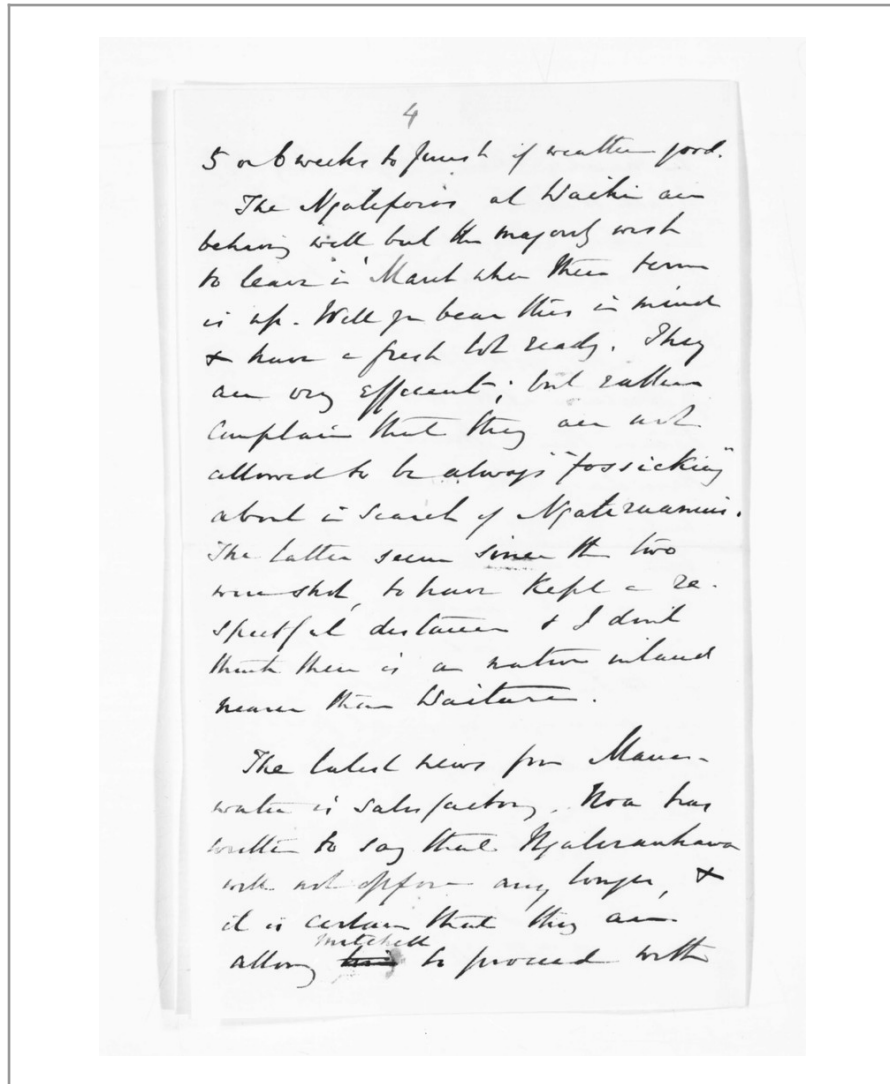 4
5 or 6 weeks to finish if weather good.
The Ngatiporos at Waihi are
behaving well but the majority wish
to leave in March when their term
is up. Will you bear this in mind
& have a fresh lot ready. They
are very efficient; but rather
complain that they are not
allowed to be always "fossicking"
about in search of Ngatiruanuis.
The latter seem since the two
were shot, to have kept a re-
spectful distance & I don't
think there is a native inland
nearer than Waitara.
The latest news from Mana-
watu is satisfactory. Noa has
written to say that Ngatiraukawa
will not oppose any longer, &
it is certain that they are
allowing Mitchell to proceed with